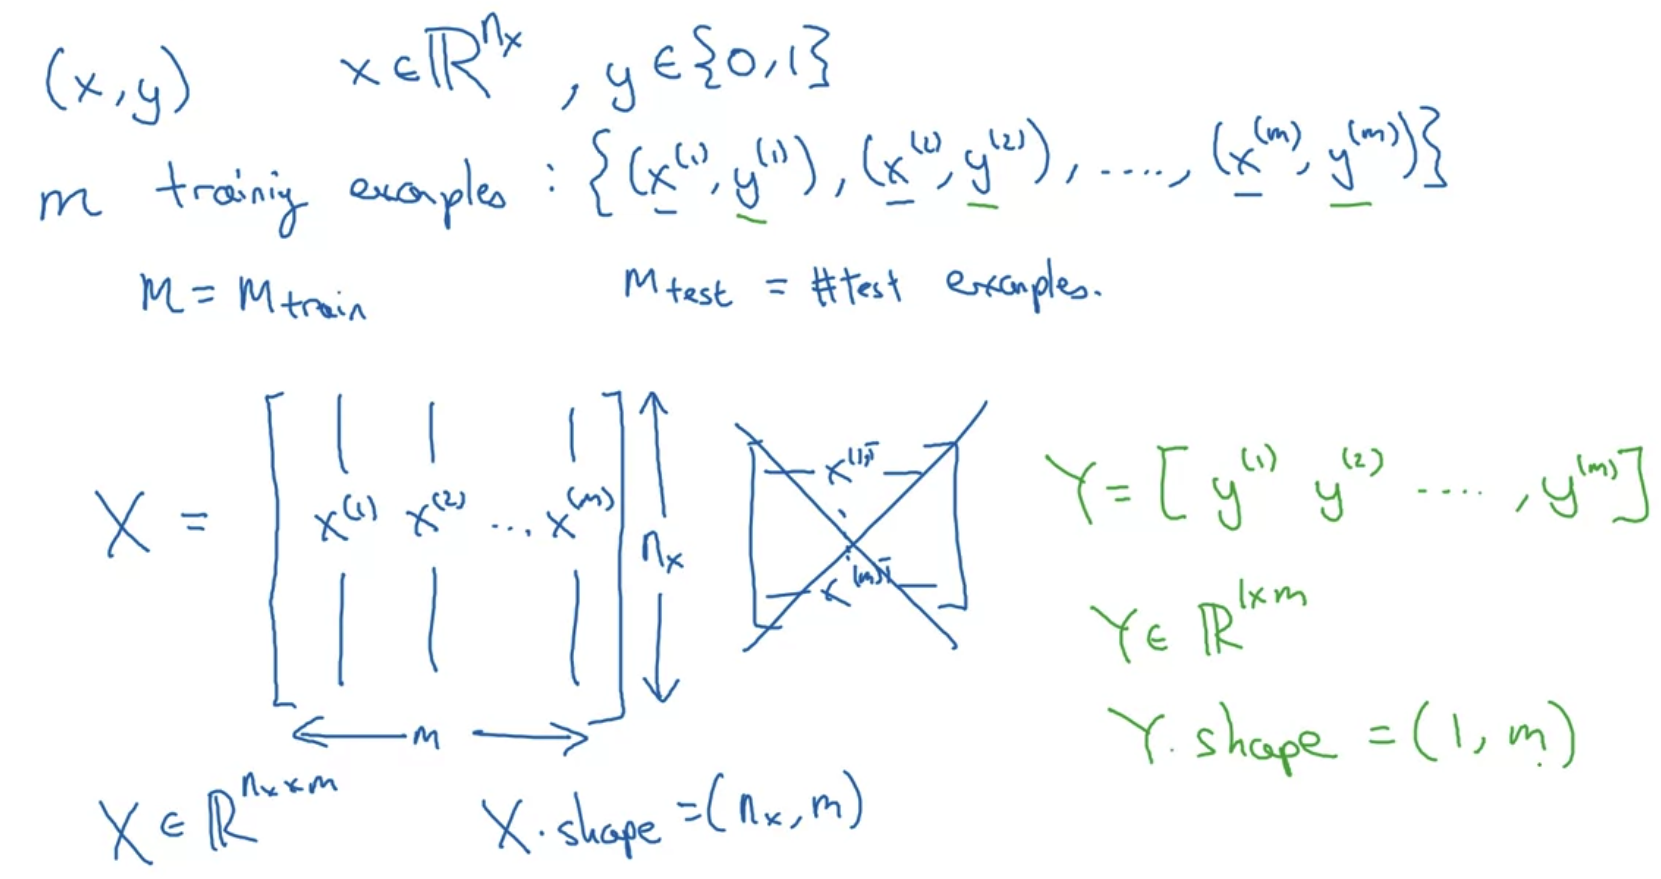 (x,y) x∈ℝ^{n_x}, y∈{0,1}
m training examples : {(x^{(1)}, y^{(1)}), (x^{(2)}, y^{(2)}), ...., (x^{(m)}, y^{(m)})}
M = M_{train} M_{test} = #test examples.
X = [x^{(1)} x^{(2)} ... x^{(m)}] n_x
m
x^{(1)T}
x^{(m)T}
Y = [y^{(1)} y^{(2)} ...., y^{(m)}]
Y∈ ℝ^{1×m}
Y.shape = (1, m)
X∈ℝ^{n_x×m} X.shape = (n_x, m)